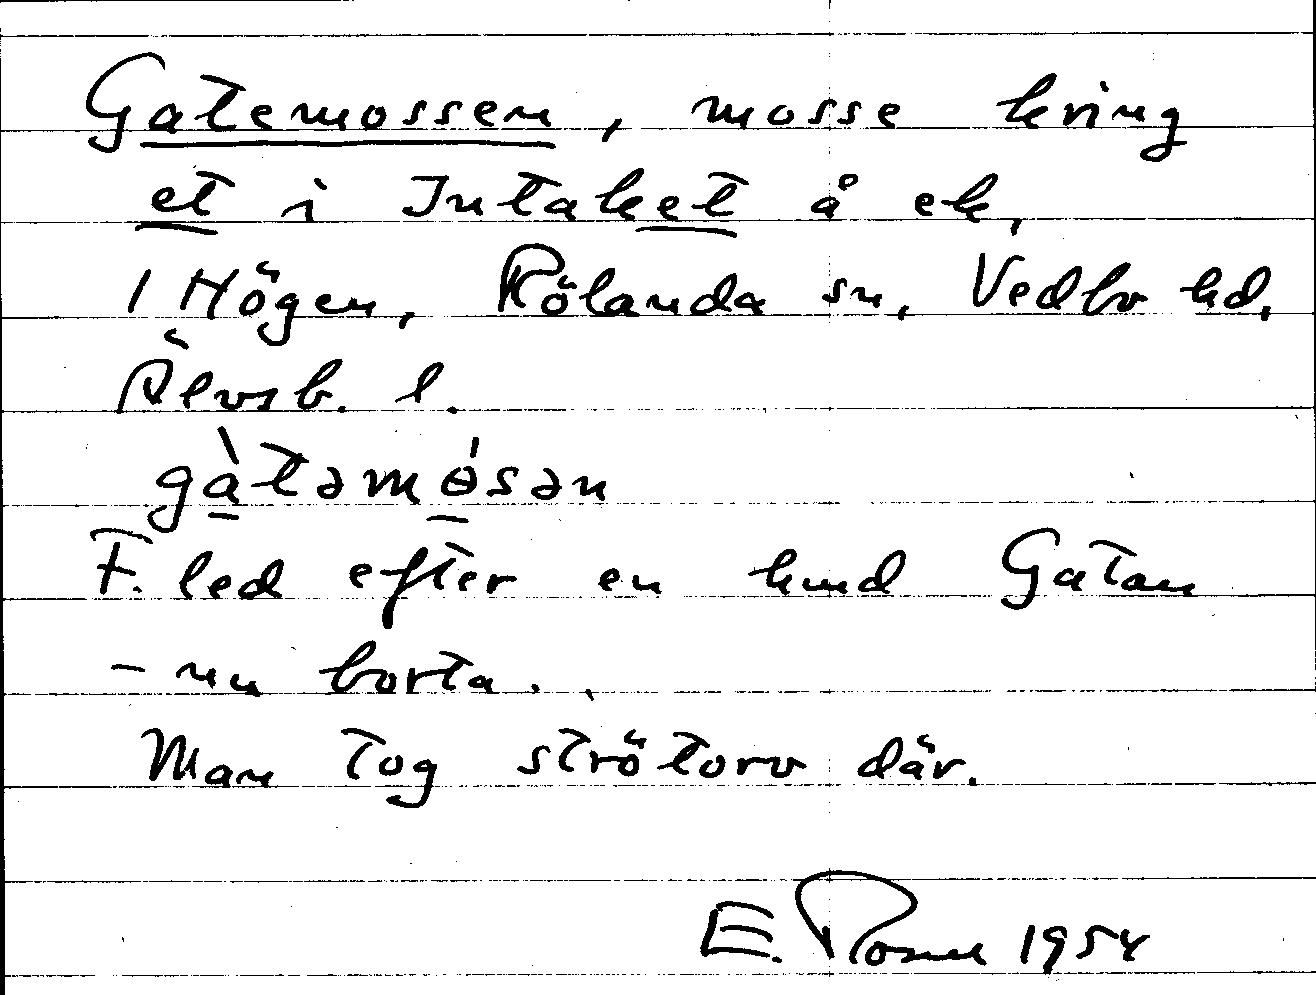 Gatemossen, mosse kring
et i Intaket å ek,
1 Högen, Rölanda sn, Vedbo hd,
Älvsb. l.
gàtəmɵ́sən
F. led efter en hund Gatan
– nu borta.
Man tog strötorv där.
E. Rosell 1954